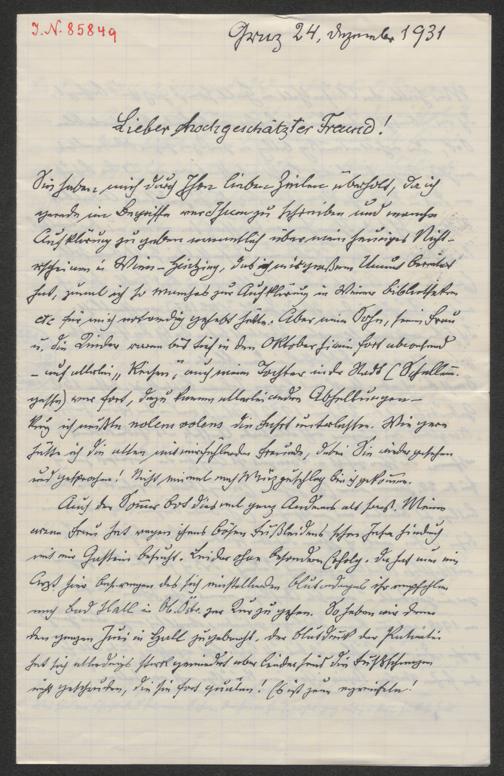 J.N. 85849
Graz 24, Dezember 1931
Lieber hochgeschätzter Freund!
Sie haben mich durch Ihre lieben Zeilen überholt, da ich
gerade im Begriffe war Ihnen zu schreiben und manche
Aufklärung zu geben namentlich über mein heuriges Nicht-
erscheinen in Wien-Hietzing, das mir großen Unmut bereitet
hat, zumal ich so manches zur Aufklärung in Wiener Bibliotheken
etc für mich notwendig gehabt hätte. Aber mein Sohn, seine Frau
u. die Kinder waren bis tief in den Oktober hinein fort abwesend
– auf allerlei „Reisen", auch meine Tochter in der Stadt (
gasse) war fort, dazu kamen allerlei andere Abhaltungen –
kurz ich mußte nolens volens die Fahrt unterlassen. Wie gern
hätte ich die alten mitfühlenden Freunde, dabei Sie wieder gesehen
und gesprochen! Nicht einmal nach Mürzzuschlag bin ich gekommen.
Auch der Sommer bot dies mal ganz Anderes als sonst. Meine
arme Frau hat wegen ihres bösen Fußleidens schon Jahre hindurch
mit mir Gastein besucht. Leider ohne besonderen Erfolg. Da hat nun ein
Arzt hier betreffen des sich einstellenden Blutandranges ihr empfohlen
nach Bad Hall in Ob.Öst. zur Kur zu gehen. So haben wir denn
den ganzen Juni in Hall zugebracht. Der Blutdruck der Patientin
hat sich allerdings stark gemindert aber leider sind die Fußschmerzen
nicht geschwunden, die sie fort quälen! Es ist zum verzweifeln!